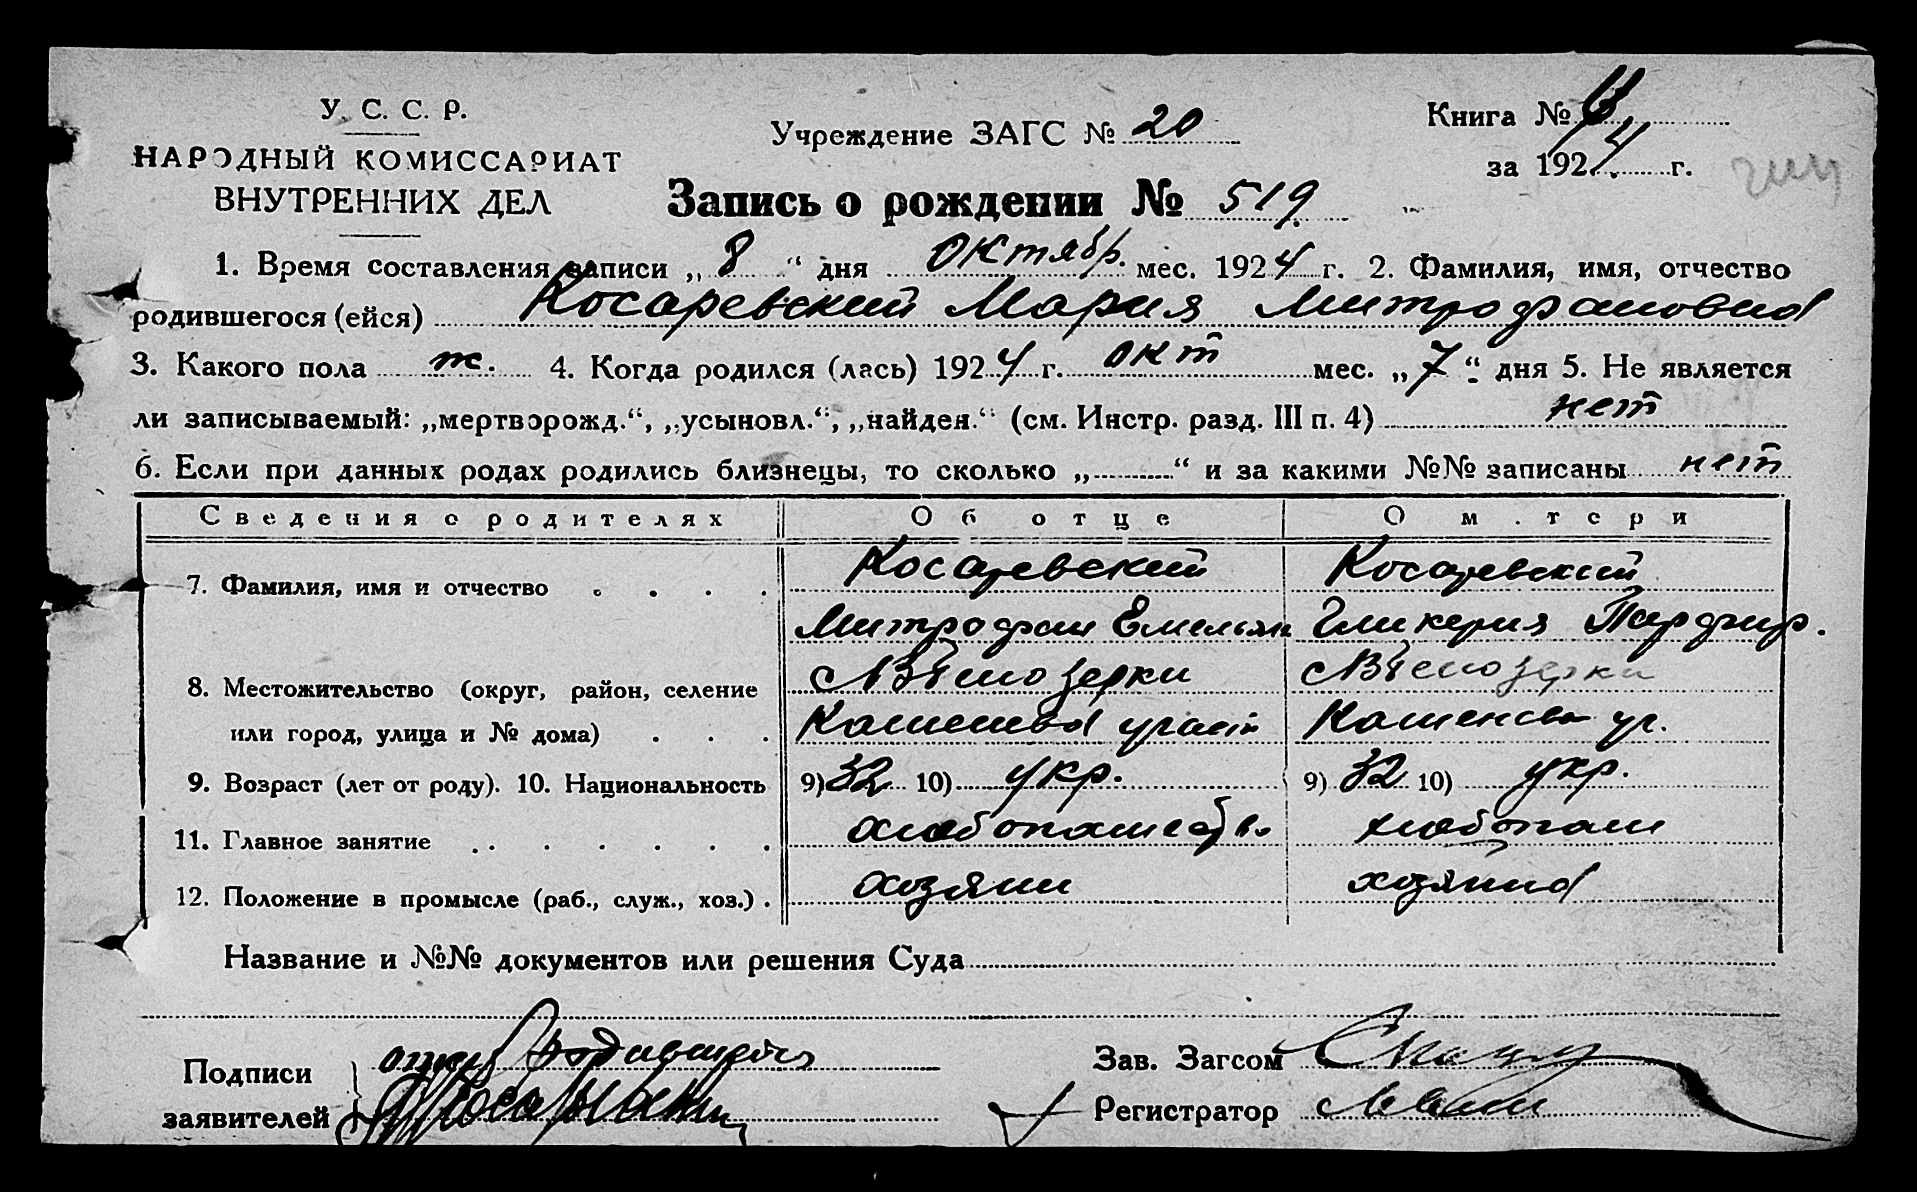 У. С. С. Р.
НАРОДНЫЙ КОМИССАРИАТ
ВНУТРЕННИХ ДЕЛ
Учреждение ЗАГС № 20
Книга №
за 1924 г.
Запись о рождении № 519
1. Время составления записи „ 8 “ дня Октябр. мес. 1924 г. 2. Фамилия, имя, отчество
родившегося (ейся) Косаревский Мария Митрофановна
3. Какого пола ж. 4. Когда родился (лась) 1924 г. окт мес. „ 7 “ дня 5. Не является
ли записываемый: „мертворожд.“, „усыновл.“, „найден.“ (см. Инстр. разд. III п. 4) нет
6. Если при данных родах родились близнецы, то сколько „ “ и за какими №№ записаны нет
Сведения о родителях Об отце О матери
7. Фамилия, имя и отчество Косаревский Косаревский
Митрофан Емельян Гликерия Парфир.
8. Местожительство (округ, район, селение
или город, улица и № дома)
9. Возраст (лет от роду). 10. Национальность 9) 32 10) укр. 9) 32 10) укр.
11. Главное занятие хлебопашество хлебопаш
12. Положение в промысле (раб., служ., хоз.) хозяин хозяйка
Название и №№ документов или решения Суда
Подписи отец
заявителей
Зав. Загсом
Регистратор